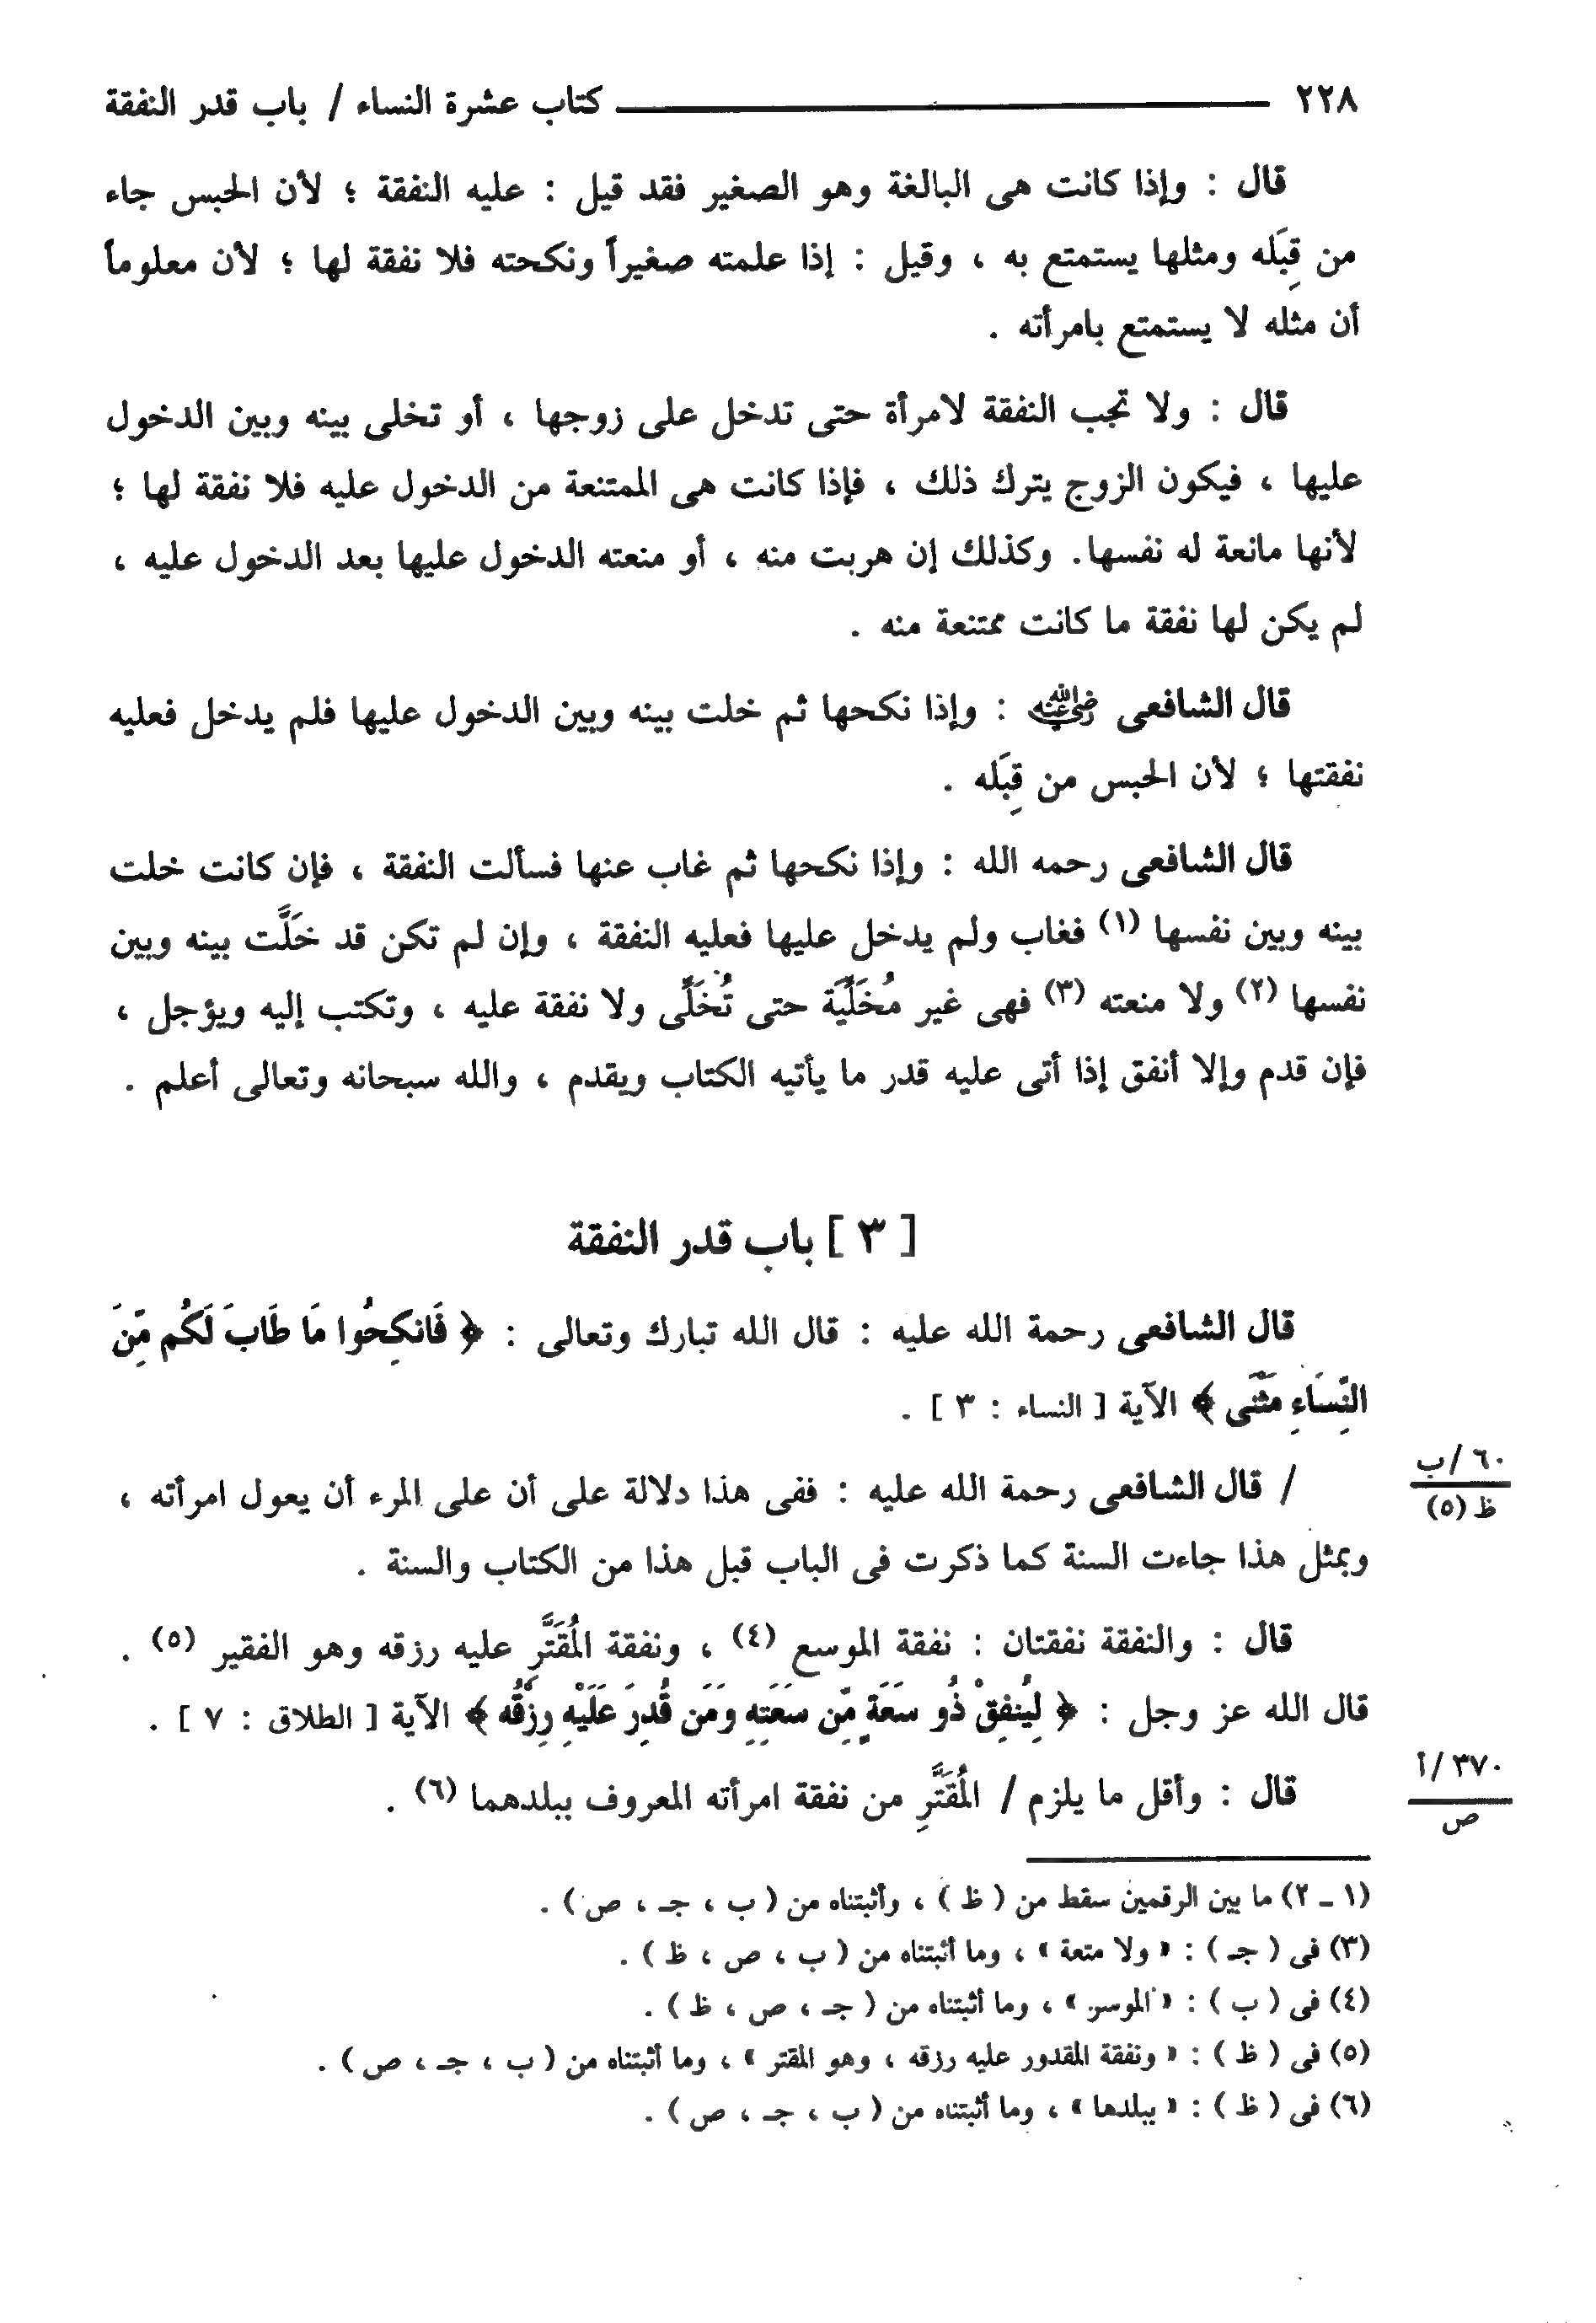 ٢٢٨ كتاب عشرة النساء / باب قدر النفقة
قال : وإذا كانت هى البالغة وهو الصغير فقد قيل : عليه النفقة ؛ لأن الحبس جاء
من قِبَله ومثلها يستمتع به ، وقيل : إذا علمته صغيراً ونكحته فلا نفقة لها ؛ لأن معلوماً
أن مثله لا يستمتع بامرأته .
قال : ولا تجب النفقة لامرأة حتى تدخل على زوجها ، أو تخلى بينه وبين الدخول
عليها ، فيكون الزوج يترك ذلك ، فإذا كانت هى الممتنعة من الدخول عليه فلا نفقة لها ؛
لأنها مانعة له نفسها. وكذلك إن هربت منه ، أو منعته الدخول عليها بعد الدخول عليه ،
لم يكن لها نفقة ما كانت ممتنعة منه .
قال الشافعى رضي الله عنه : وإذا نكحها ثم خلت بينه وبين الدخول عليها فلم يدخل فعليه
نفقتها ؛ لأن الحبس من قِبَله .
قال الشافعى رحمه الله : وإذا نكحها ثم غاب عنها فسألت النفقة ، فإن كانت خلت
بينه وبين نفسها (١) فغاب ولم يدخل عليها فعليه النفقة ، وإن لم تكن قد خَلَّت بينه وبين
نفسها (٢) ولا منعته (٣) فهى غير مُخَلِّيَة حتى تُخَلِّى ولا نفقة عليه ، وتكتب إليه ويؤجل ،
فإن قدم وإلا أنفق إذا أتى عليه قدر ما يأتيه الكتاب ويقدم ، والله سبحانه وتعالى أعلم .
[ ٣ ] باب قدر النفقة
قال الشافعى رحمة الله عليه : قال الله تبارك وتعالى : ﴿ فَانكِحُوا مَا طَابَ لَكُم مِّنَ
النِّسَاءِ مَثْنَى ﴾ الآية [ النساء : ٣ ] .
٦٠ /ب
ظ (٥)
/ قال الشافعى رحمة الله عليه : ففى هذا دلالة على أن على المرء أن يعول امرأته ،
وبمثل هذا جاءت السنة كما ذكرت فى الباب قبل هذا من الكتاب والسنة .
قال : والنفقة نفقتان : نفقة الموسع (٤) ، ونفقة المُقَتَّرِ عليه رزقه وهو الفقير (٥) .
قال الله عز وجل : ﴿ لِيُنفِقْ ذُو سَعَةٍ مِّن سَعَتِهِ وَمَن قُدِرَ عَلَيْهِ رِزْقُه ﴾ الآية [ الطلاق : ٧ ] .
٣٧٠ /أ
ص
قال : وأقل ما يلزم / المُقَتَّرِ من نفقة امرأته المعروف ببلدهما (٦) .
(١ ـ ٢) ما بين الرقمين سقط من ( ظ ) ، وأثبتناه من ( ب ، جـ ، ص ) .
(٣) فى ( جـ ) : « ولا متعة » ، وما أثبتناه من ( ب ، ص ، ظ ) .
(٤) فى ( ب ) : « الموسر » ، وما أثبتناه من ( جـ ، ص ، ظ ) .
(٥) فى ( ظ ) : « ونفقة المقدور عليه رزقه ، وهو المقتر » ، وما أثبتناه من ( ب ، جـ ، ص ) .
(٦) فى ( ظ ) : « ببلدها » ، وما أثبتناه من ( ب ، جـ ، ص ) .